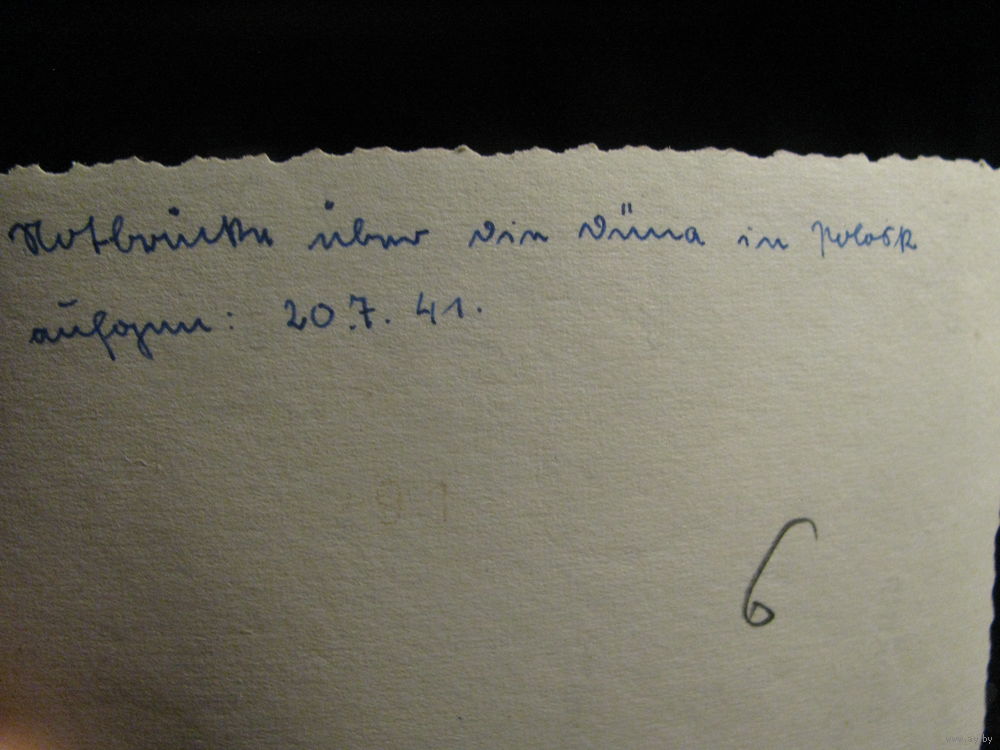 Notbrücke über die Düna in Polosk
aufgen: 20.7.41.
91
6
www.ay.by